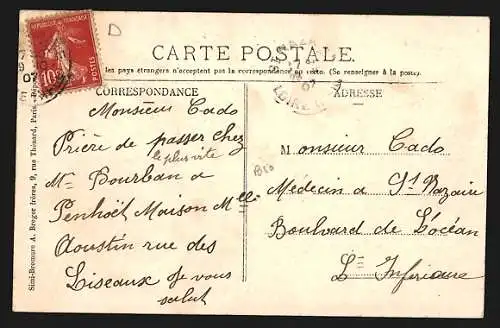 D
REPUBLIQUE FRANÇAISE
10c
POSTES
07
CARTE POSTALE.
les pays étrangers n'acceptent pas la correspondance au recto. (Se renseigner à la poste.)
CORRESPONDANCE
ADRESSE
LOIRE
07
Monsieur Cado
Prière de passer chez
le plus vite
Mr Bourban a
Penhoët Maison Melle
Aoustin rue des
Liseaux Je vous
salut
Monsieur Cado
Médecin a St Nazaire
Boulvard de L'océan
Lre Inférieure
Simi-Bromure A. Breger frères, 9, rue Thénard, Paris